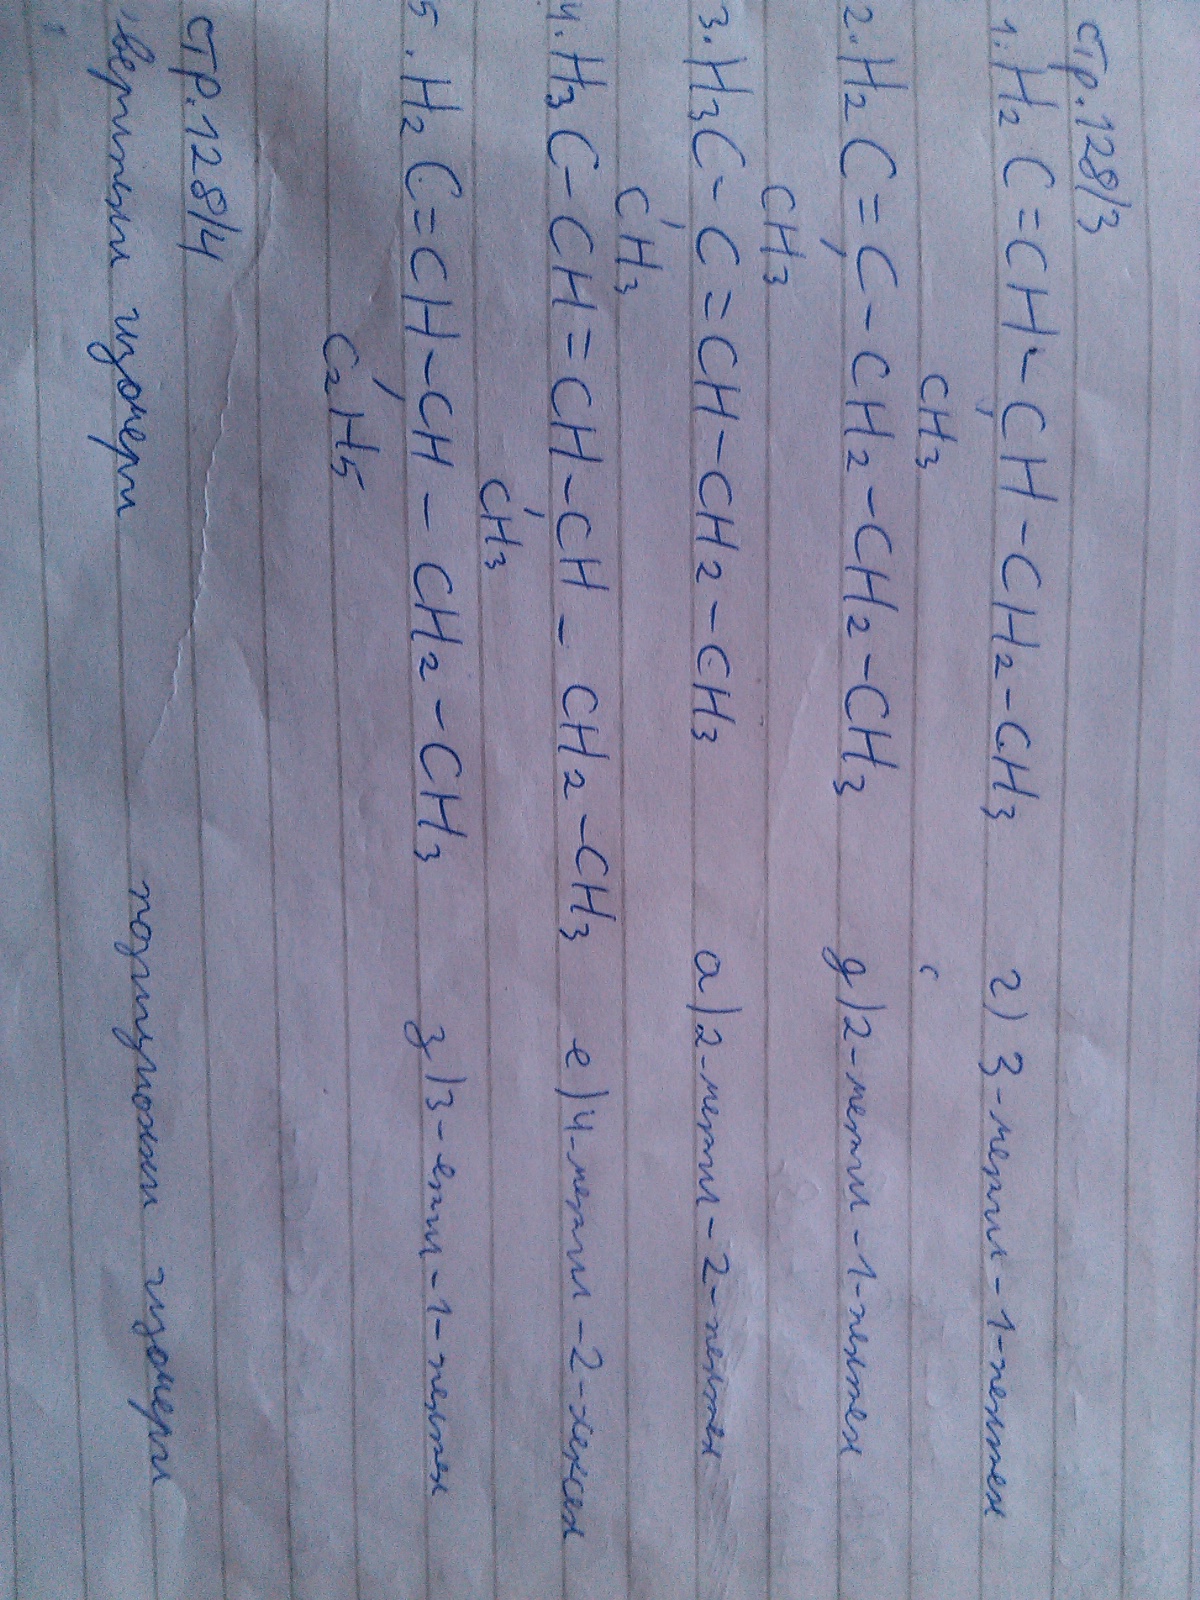 стр.128/3
1. H₂C=CH-CH-CH₂-CH₃ г) 3-метил-1-пентен
CH₃
2. H₂C=C-CH₂-CH₂-CH₃ д) 2-метил-1-пентен
CH₃
3. H₃C-C=CH-CH₂-CH₃ а) 2-метил-2-пентен
CH₃
4. H₃C-CH=CH-CH-CH₂-CH₃ е) 4-метил-2-хексен
CH₃
5. H₂C=CH-CH-CH₂-CH₃ з) 3-етил-1-пентен
C₂H₅
стр.128/4
верижни изомери позиционни изомери